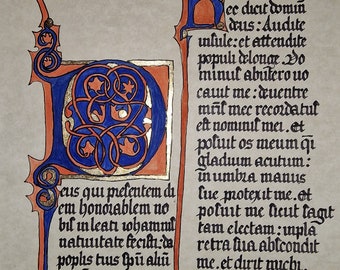 Deus qui presentem di
em honorabilem no
bis in beati iohannis
natiuitate fecisti: da
poplis tuis
Hec dicit domin̄
deus: Audite
insule: et attendite
populi de longe. Do
minus ab utero uo
cauit me: de uentre
mr̄is mee recordatus
est nominis mei. et
posuit os meum q̄i
gladium acutum:
in umbra manus
sue protexit me. et
posuit me sicut sagit
tam electam: in pha
retra sua abscondit
me. et dixit michi